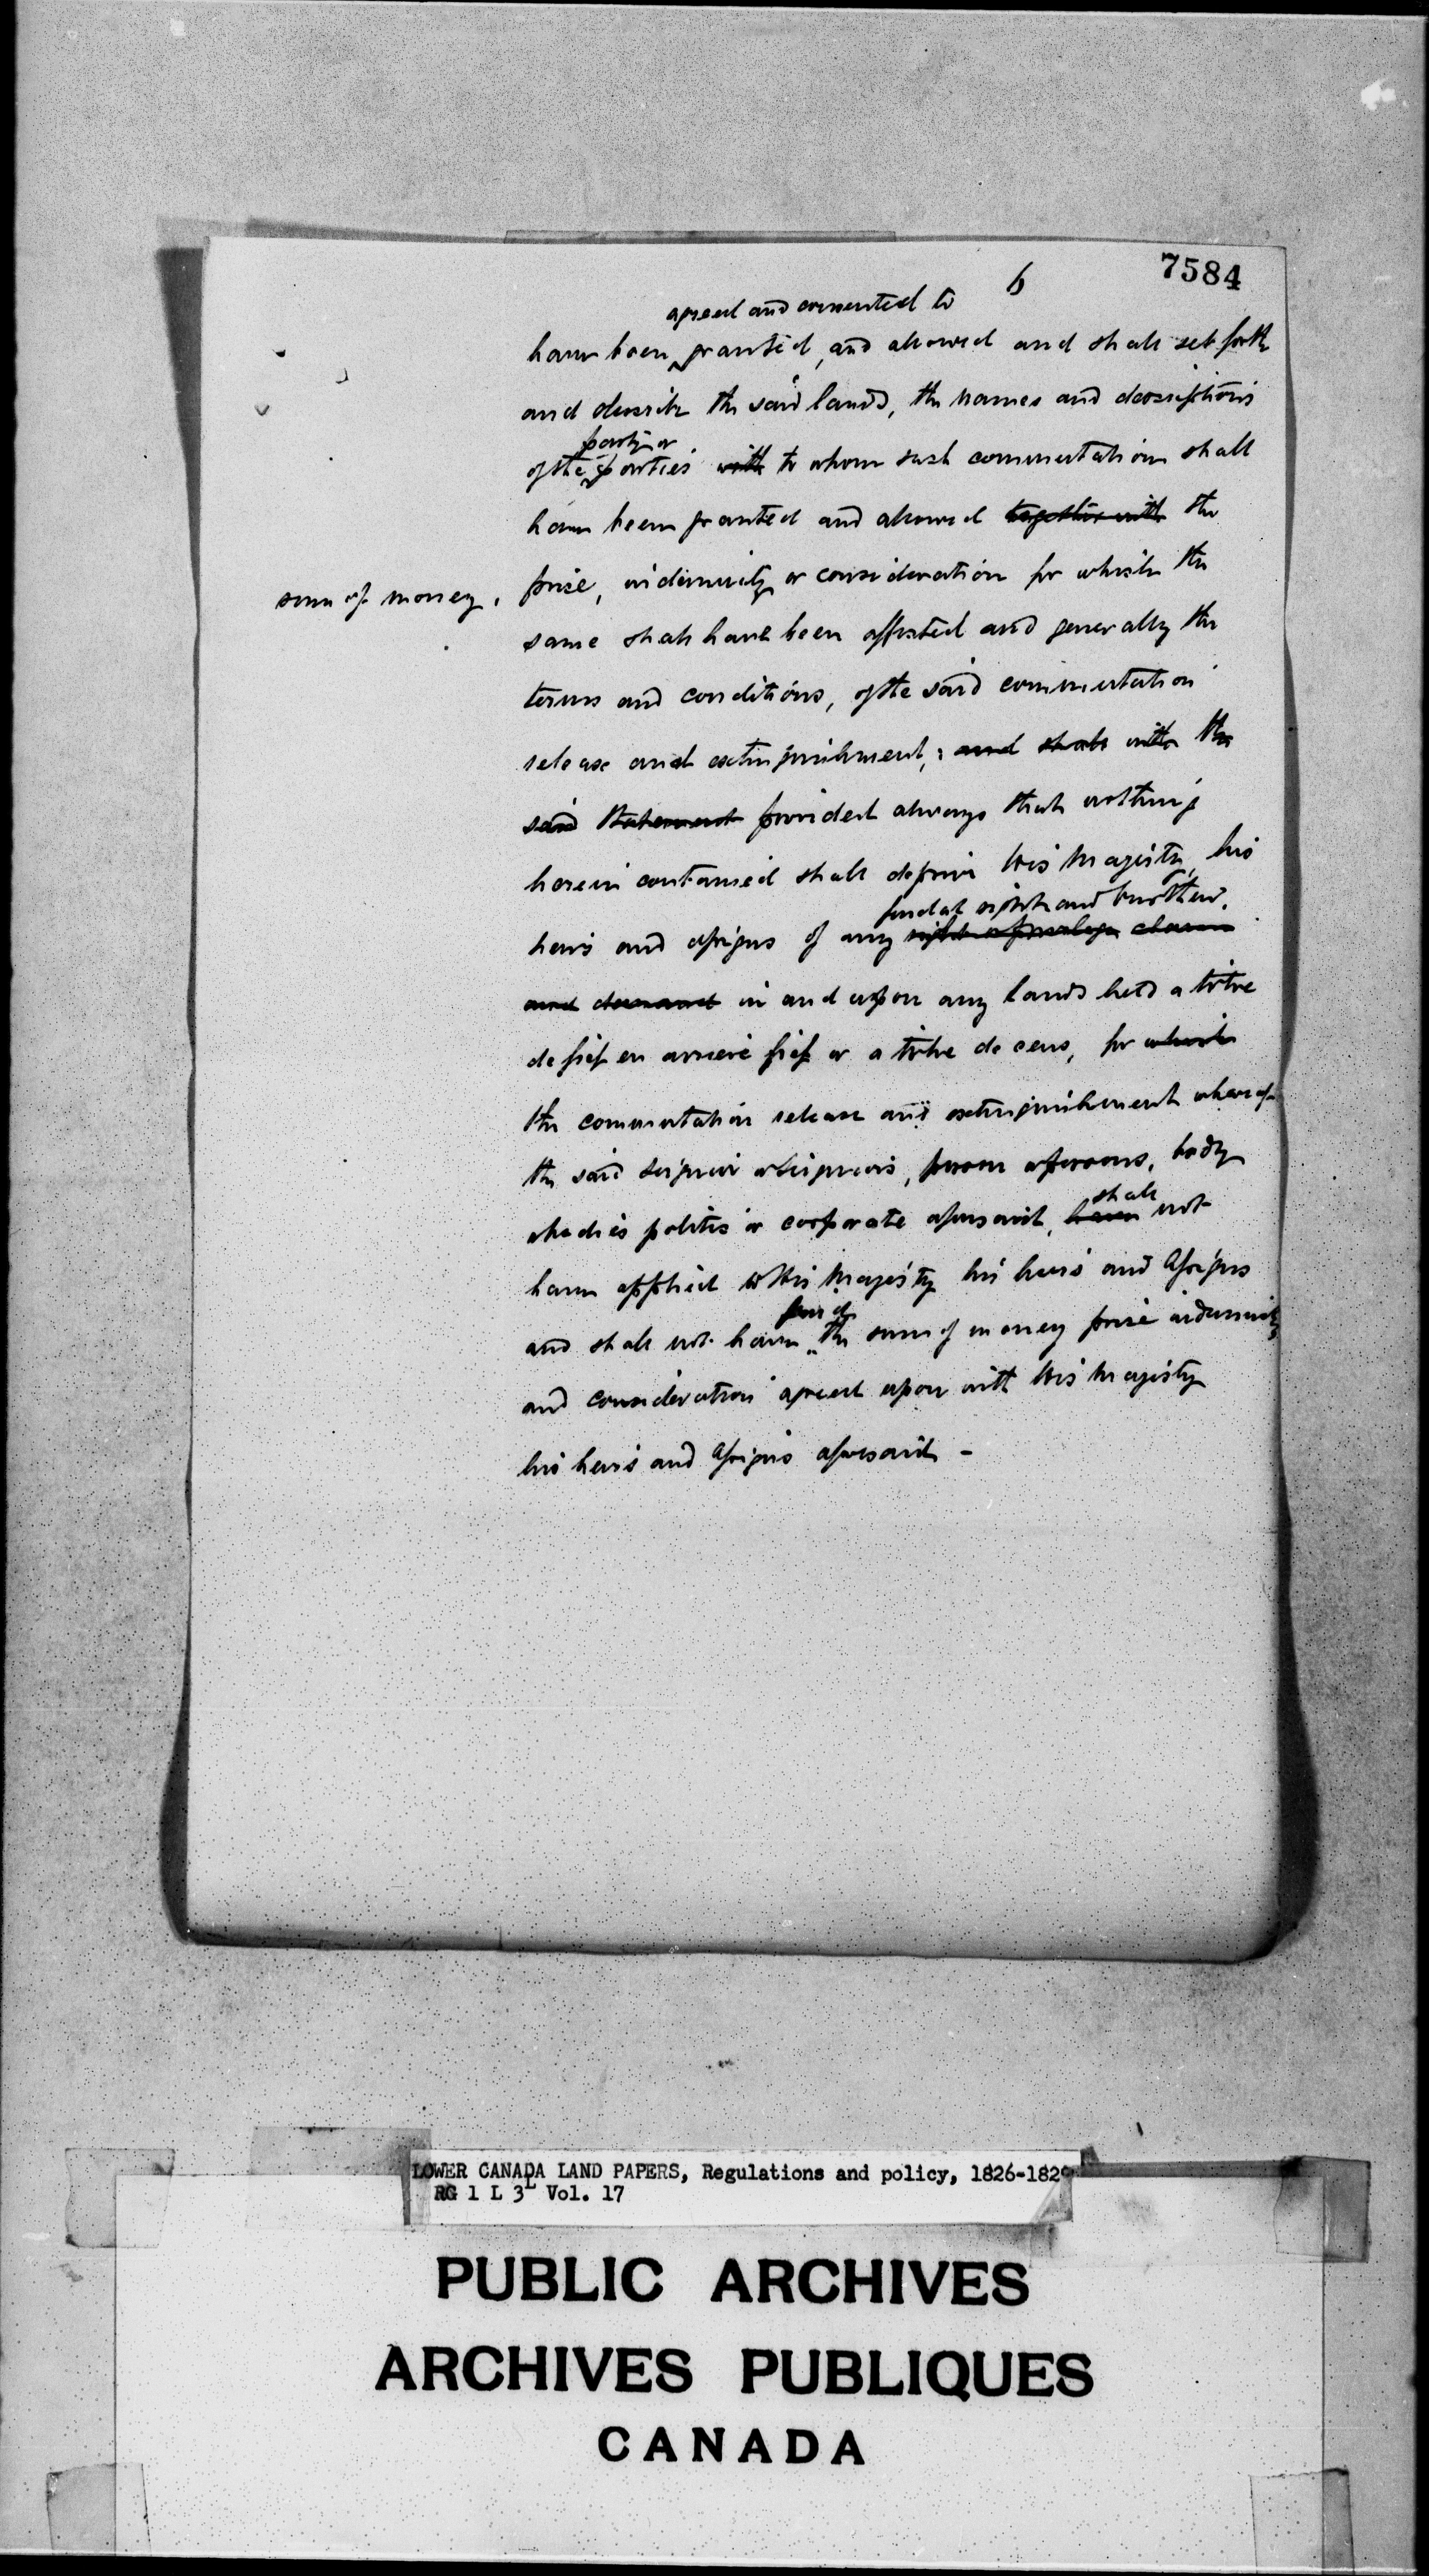 7584
6
agreed and consented to
have been granted, and allowed and shall set forth
and describe the said lands, the names and descriptions
party or
of the parties with to whom such commutation shall
have been granted and allowed together with the
sum of money, price, indemnity or consideration for which the
same shall have been effected and generally the
terms and conditions, of the said commutation
release and extinguishment; and shall with the
said Statement provided always that nothing
herein contained shall deprive His Majesty, his
feudal rights and burthens.
heirs and assigns of any right or privilege claim
and demand in and upon any lands held a titre
de fief en arriere fief or a titre de cens, for which
the commutation release and extinguishment whereof
the said Seignior or Seigniors, person or persons, body
shall
or bodies politic or corporate aforesaid, have not
have applied to His Majesty his heirs and Assigns
paid
and shall not have the sum of money price indemnity
and consideration agreed upon with His Majesty
his heirs and Assigns aforesaid -
LOWER CANADA LAND PAPERS, Regulations and policy, 1826-1829
RG 1 L 3L Vol. 17
PUBLIC ARCHIVES
ARCHIVES PUBLIQUES
CANADA